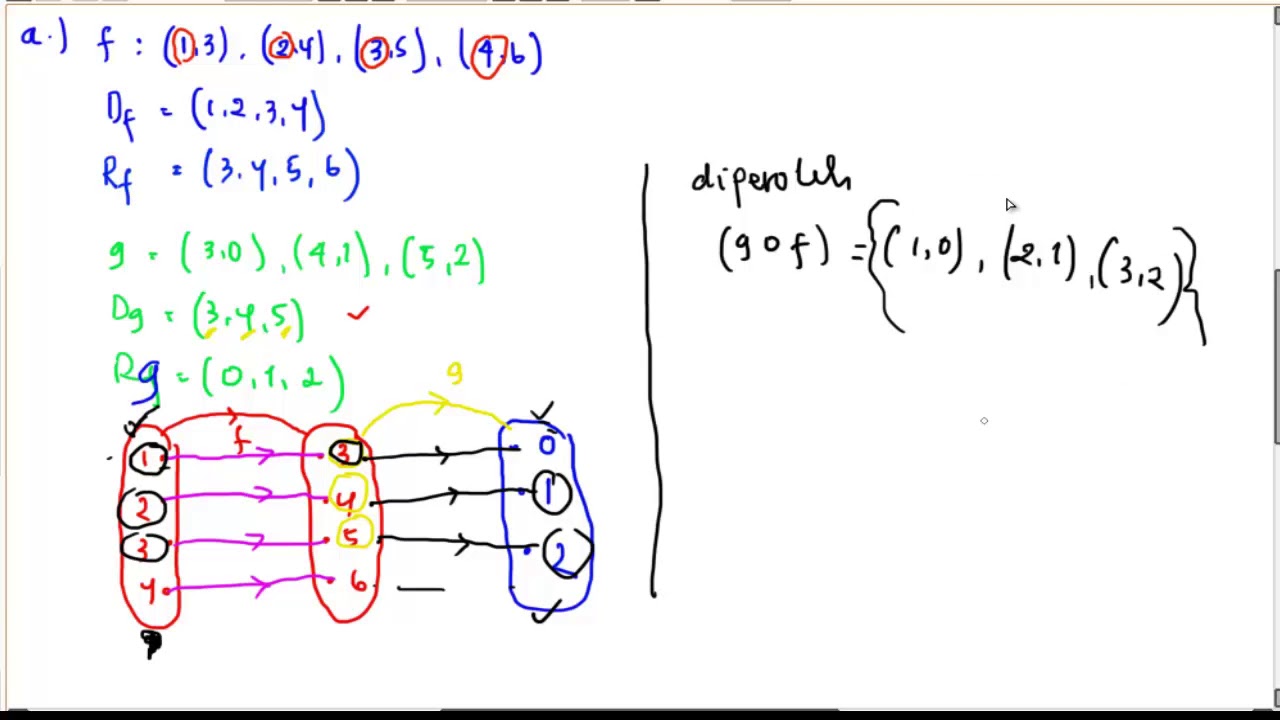 a.) f : (1,3), (2,4), (3,5), (4,6)
Df = (1,2,3,4)
Rf = (3,4,5,6)
g = (3,0), (4,1), (5,2)
Dg = (3,4,5) ✓
Rg = (0,1,2)
f g
1 3 0
2 4 1
3 5 2
4 6 —
diperoleh
(g o f) = {(1,0), (2,1), (3,2)}